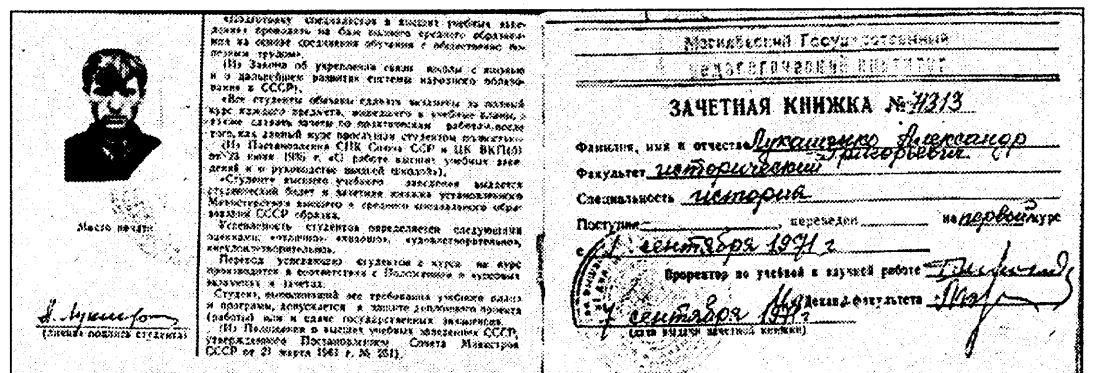 «Подготовку специалистов в высших учебных заве-
дениях проводить на базе полного среднего образова-
ния на основе соединения обучения с общественно по-
лезным трудом».
(Из Закона об укреплении связи школы с жизнью
и о дальнейшем развитии системы народного образо-
вания в СССР).
«Все студенты обязаны сдавать экзамены за полный
курс каждого предмета, входящего в учебные планы, а
также сдавать зачеты по практическим работам после
того, как данный курс прослушан студентом полностью»
(Из Постановления СНК Союза ССР и ЦК ВКП(б)
от 23 июня 1936 г. «О работе высших учебных заве-
дений и о руководстве высшей школой»).
«Студенту высшего учебного заведения выдается
студенческий билет и зачетная книжка установленного
Министерством высшего и среднего специального обра-
зования СССР образца.
Успеваемость студентов определяется следующими
оценками: «отлично» «хорошо», «удовлетворительно»,
«неудовлетворительно».
Перевод успевающих студентов с курса на курс
производится в соответствии с Положением о курсовых
экзаменах и зачетах.
Студент, выполнивший все требования учебного плана
и программы, допускается к защите дипломного проекта
(работы) или к сдаче государственных экзаменов.
(Из Положения о высших учебных заведениях СССР,
утвержденного Постановлением Совета Министров
СССР от 21 марта 1961 г. № 251).
Место печати
(личная подпись студента)
Могилевский Государственный
педагогический институт
ЗАЧЕТНАЯ КНИЖКА № 71313
Фамилия, имя и отчество Лукашенко Александр
Григорьевич
Факультет исторический
Специальность история
Поступил переведен на первый курс
с 1 сентября 1971 г
Проректор по учебной и научной работе
Декан факультета
1 сентября 1971 г
(дата выдачи зачетной книжки)